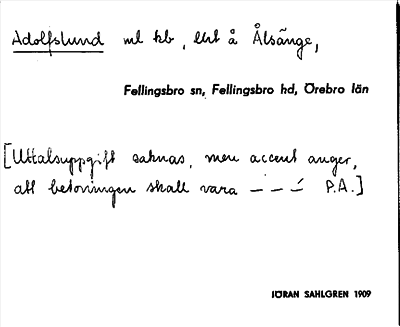 Adolfslund ml kb, lht å Ålsänge,
Fellingsbro sn, Fellingsbro hd, Örebro län
[Uttalsuppgift saknas, men accent anger,
att betoningen skall vara – – –́ P.A.]
JÖRAN SAHLGREN 1909